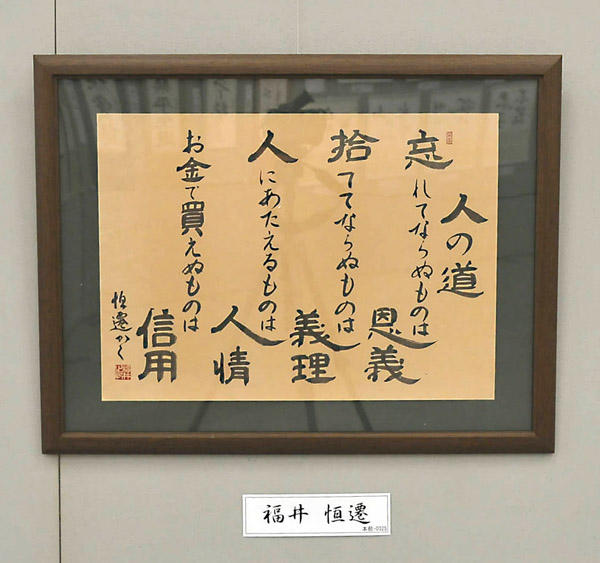 人の道
忘れてならぬものは
恩義
拾ててならぬものは
義理
人にあたえるものは
人情
お金で買えぬものは
信用
恒遷かく
福井 恒遷
本館-0325